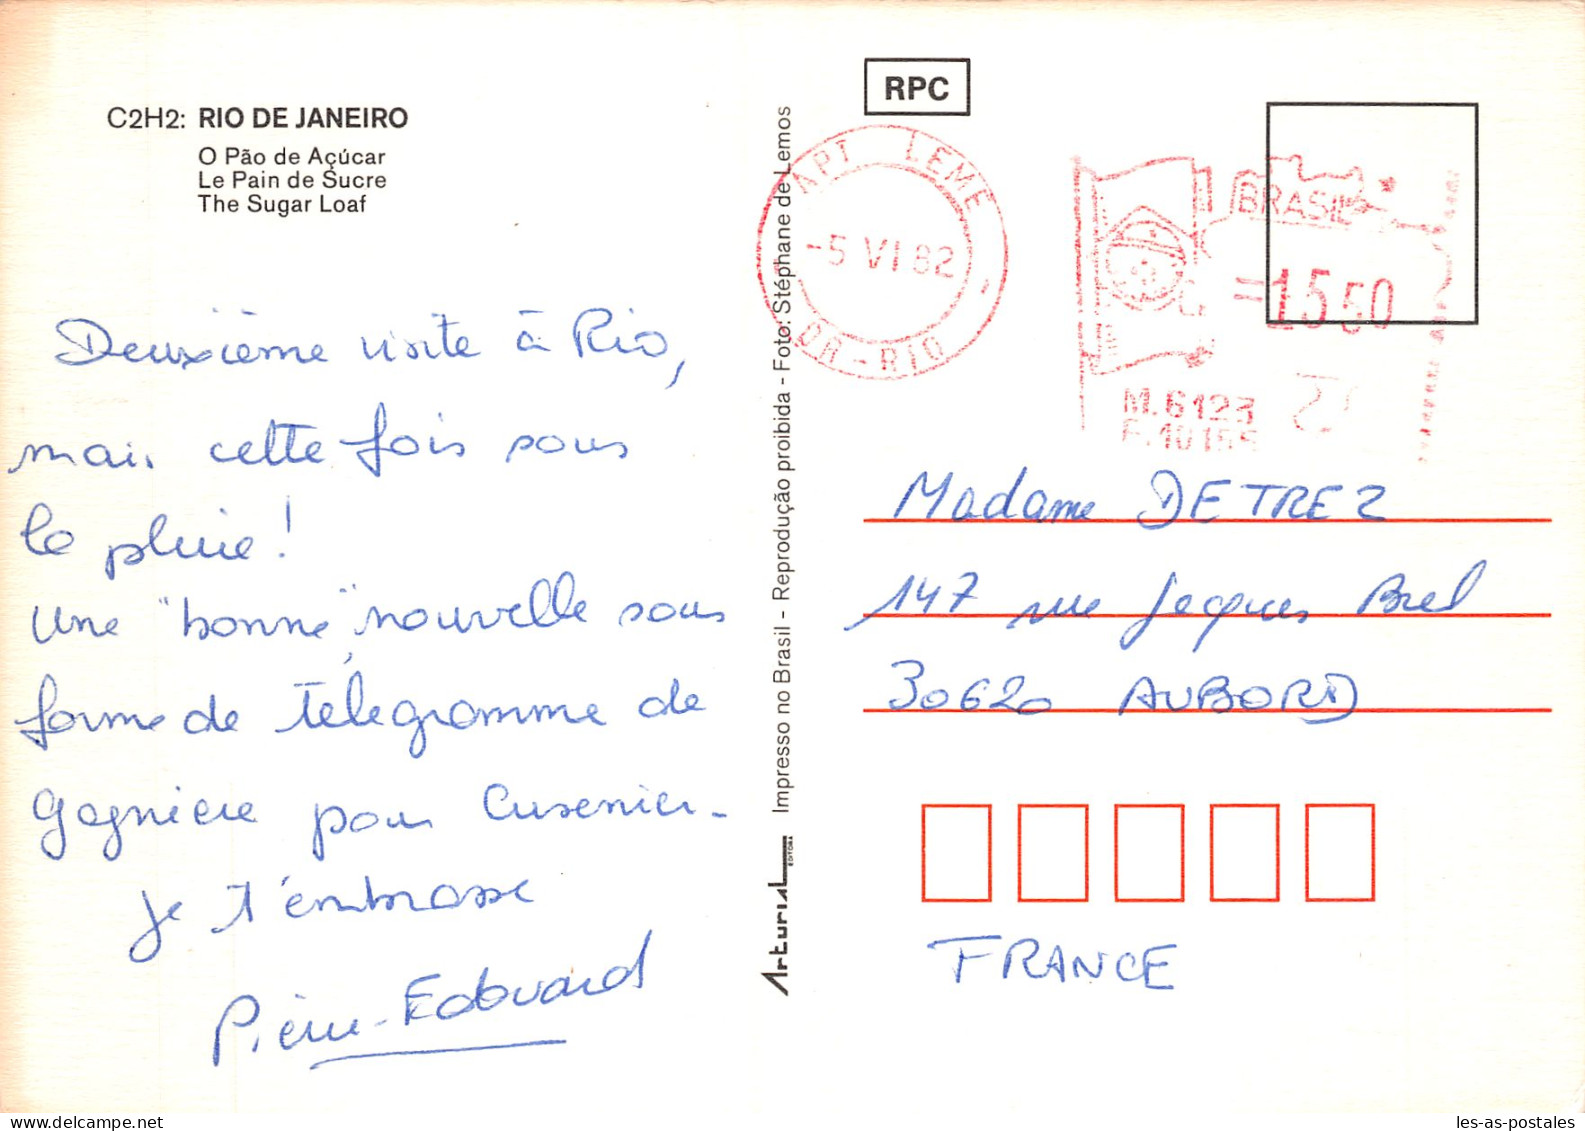 C2H2: RIO DE JANEIRO
O Pão de Açúcar
Le Pain de Sucre
The Sugar Loaf
Deuxième visite à Rio,
mais cette fois sous
la pluie!
Une "bonne" nouvelle sous
forme de télégramme de
Gagnière pour
Je t'embrasse
Pierre-Edouard
Arturial
EDITORA
Impresso no Brasil - Reprodução proibida - Foto: Stéphane de Lemos
RPC
APT LEME
-5 VI 82
DR-RIO
BRASIL
=1550
M.6123
Madame DETREZ
147 rue Jacques Brel
30620 AUBORD
FRANCE
les-as-postales
delcampe.net